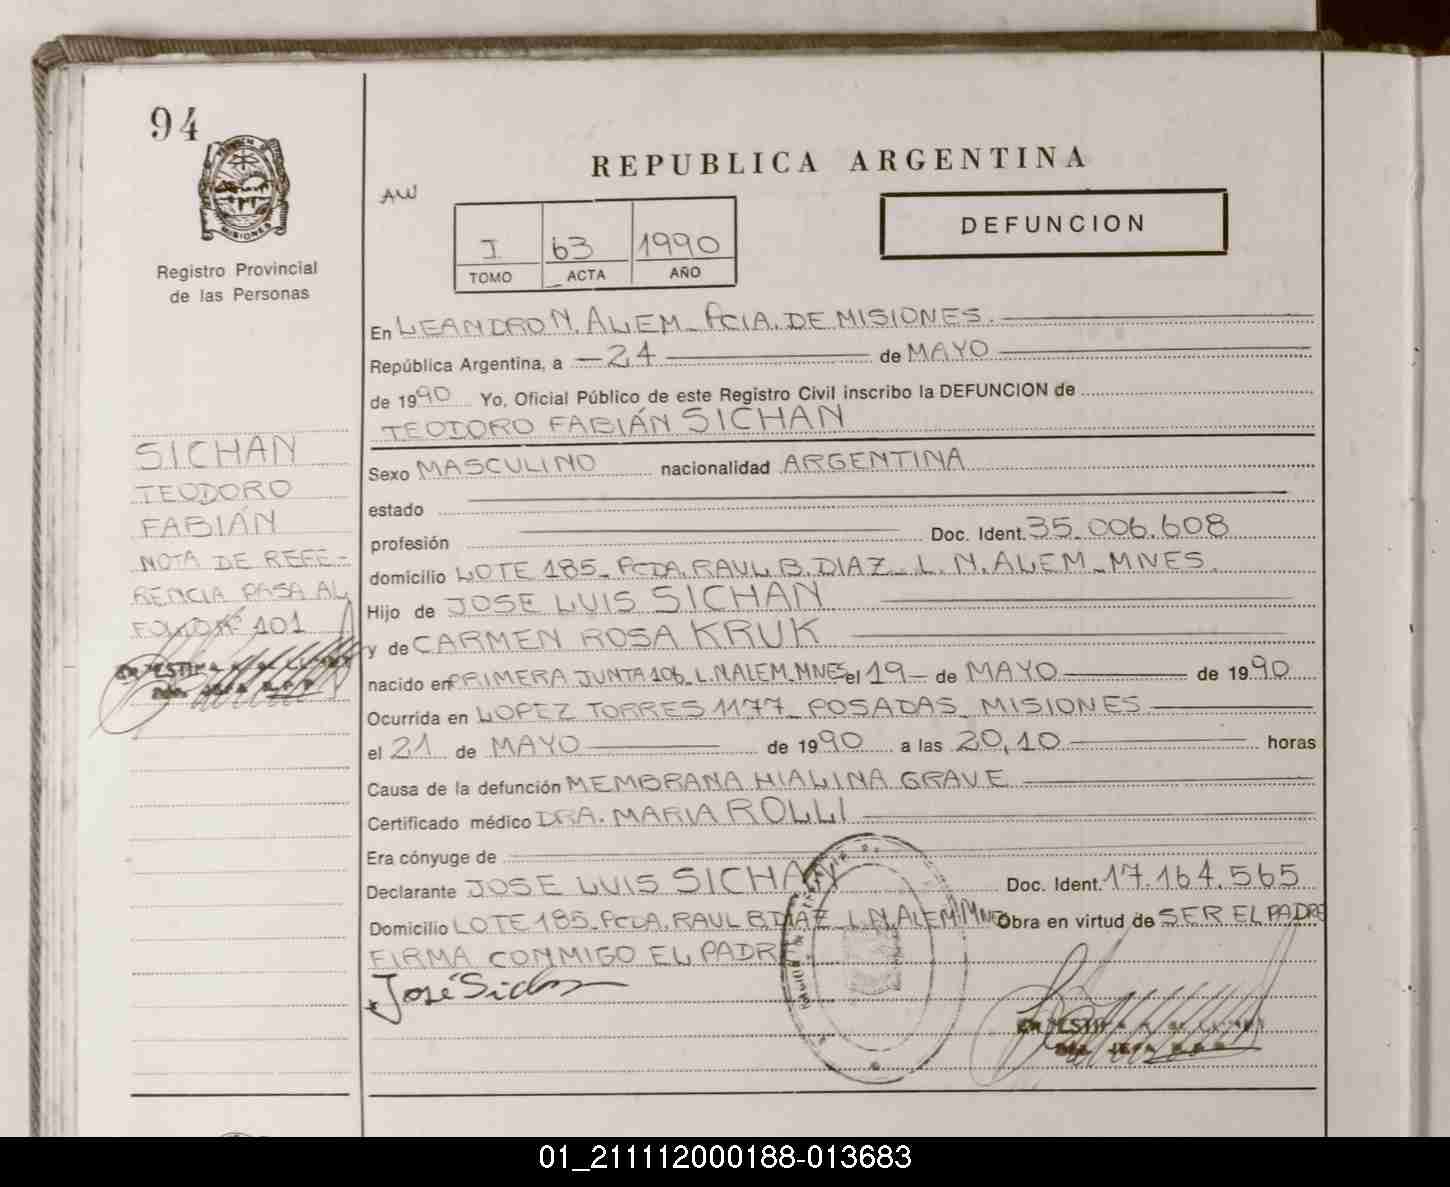 94
PROVINCIA DE
MISIONES
Registro Provincial
de las Personas
SICHAN
TEODORO
FABIÁN
NOTA DE REFE-
RENCIA PASA AL
FOLIO Nº 101
REPUBLICA ARGENTINA
AW
DEFUNCION
I 63 1990
TOMO ACTA AÑO
En LEANDRO N. ALEM_ PCIA. DE MISIONES.
República Argentina, a 24 de MAYO
de 1990 Yo, Oficial Público de este Registro Civil inscribo la DEFUNCION de
TEODORO FABIÁN SICHAN
Sexo MASCULINO nacionalidad ARGENTINA
estado
profesión Doc. Ident. 35.006.608
domicilio LOTE 185_ PCDA. RAUL B. DIAZ_ L. N. ALEM_MNES.
Hijo de JOSE LUIS SICHAN
y de CARMEN ROSA KRUK
nacido en PRIMERA JUNTA 106_ L.N.ALEM_MNES el 19 de MAYO de 1990
Ocurrida en LOPEZ TORRES 1177_ POSADAS_ MISIONES
el 21 de MAYO de 1990 a las 20,10 horas
Causa de la defunción MEMBRANA HIALINA GRAVE
Certificado médico DRA. MARIA ROLLI
Era cónyuge de
Declarante JOSE LUIS SICHAN Doc. Ident. 17.164.565
Domicilio LOTE 185_PCDA. RAUL B. DIAZ_ L. N. ALEM. MNES Obra en virtud de SER EL PADRE
FIRMA CONMIGO EL PADRE
José Sichan
01_211112000188-013683